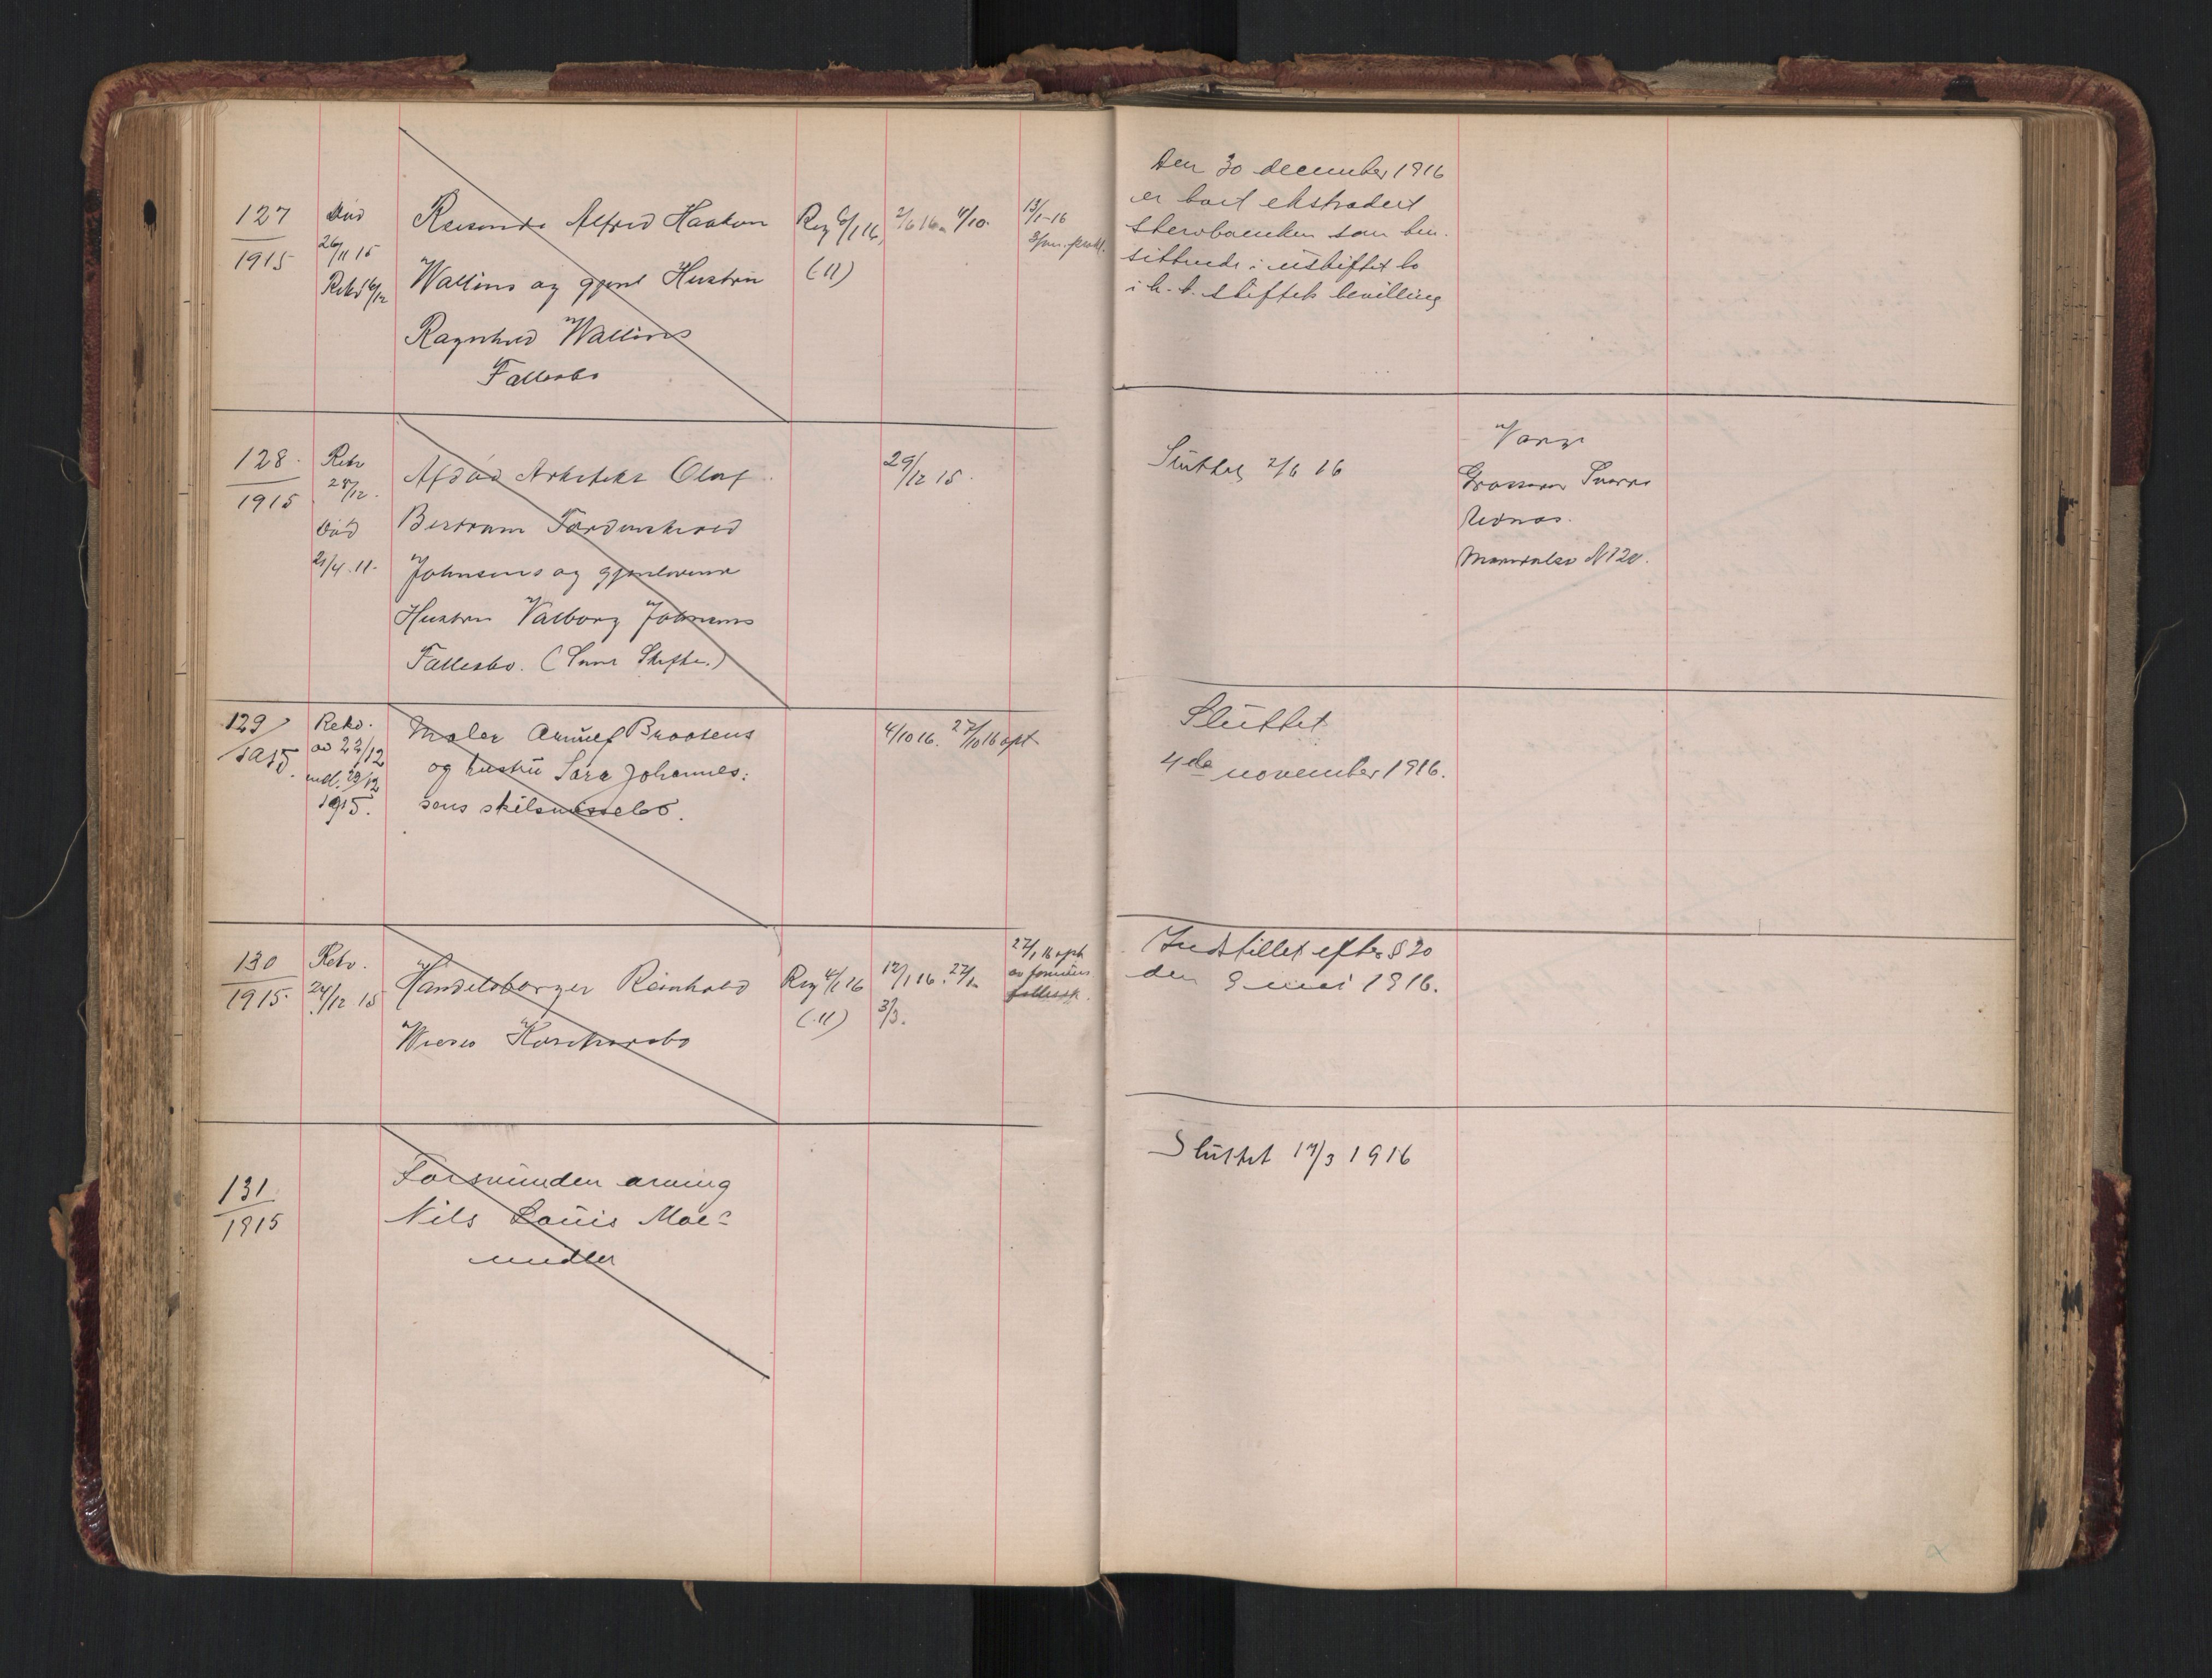 127
1915
Død
26/11 15
Rekv 6/12
Reisende Alfred Haakon
Wallins og gjenl Hustru
Ragnhild Wallins
Fællesbo
Reg 6/1 16
(11)
2/6 16 4/10.
13/1-16
3/mn. prokl.
Den 30 december 1916
er boet ekstradert
som
sittende i uskiftet bo
i h. t. skiftets bevilling
128.
1915
Rekv
28/12.
Død
21/4.11.
Afdød Arkitekt Olaf
Bertram Tordenskiold
Johnsens og gjenlevende
Hustru Valborg Johnsens
Fællesbo. (Smr Skifte.)
29/12 15.
Sluttet 2/6 16
Værge
Grosserer Sverre
N 20.
129
1915.
Rekv.
av 22/12
1915.
Maler Arnulf Braatens
og hustru Sara Johannes:
sens skilsmissebo.
4/10 16. 27/10 16 opt
Sluttet
4de november 1916.
130
1915.
Rekv.
24/12 15
Handelsborger Reinhold
Wieses Konkursbo
Reg 4/1 16
(11)
12/1 16. 27/1
3/3.
27/1 16 opt
av formuens
Indstillet efter § 20
den 9 mai 1916.
131
1915
Forsvunden arving
Nils Louis Moe-
Sluttet 17/3 1916